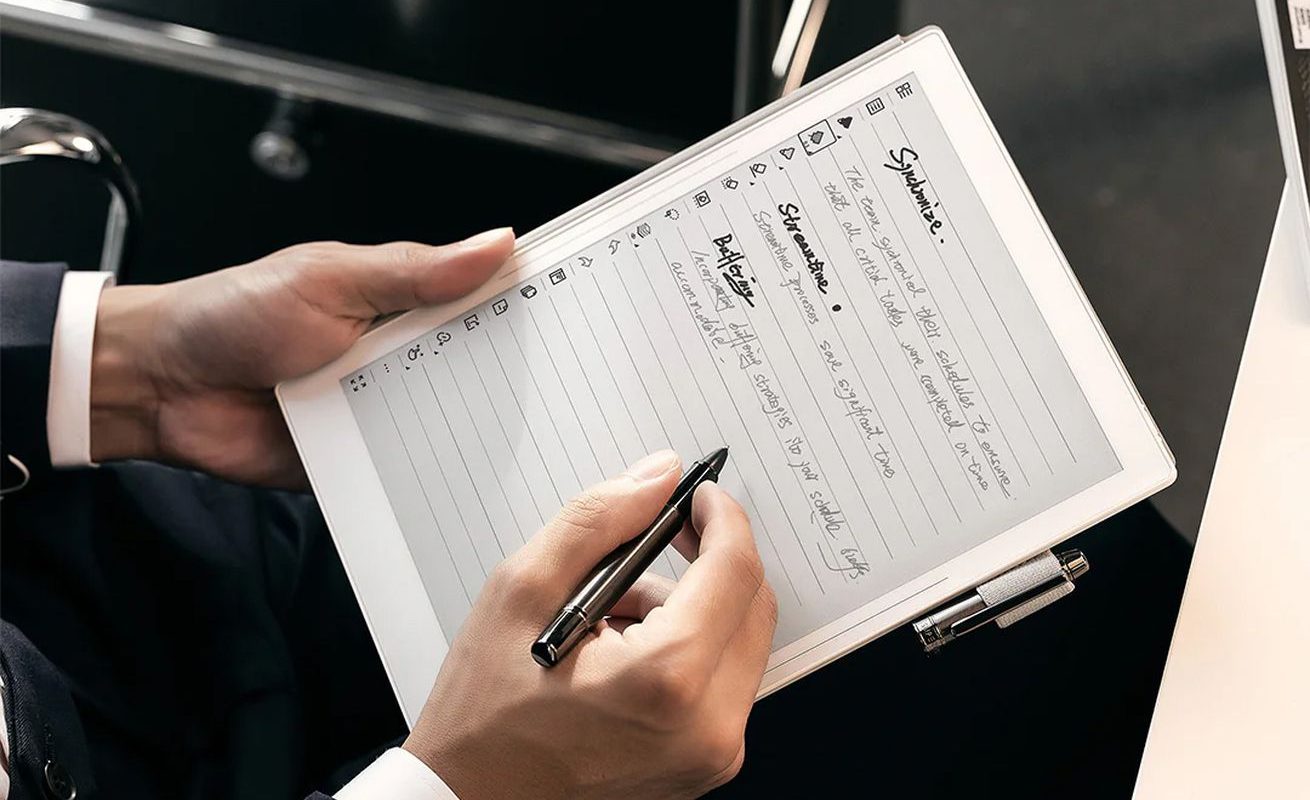 Synchronize.
The team synchronized their schedules to ensure
that all critical tasks were completed on time
Streamtime •
Streamtime processes save significant time
Buffering
Incorporating differing strategies into your schedule helps
accommodate.